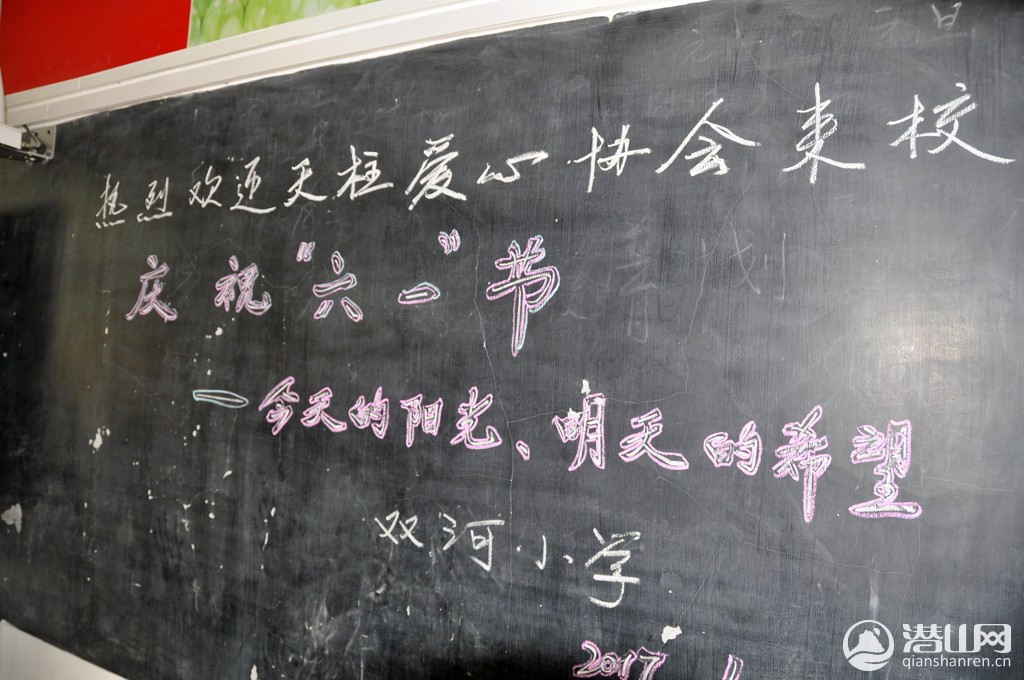 元旦
热烈欢迎天柱爱心协会来校
庆祝“六一”节
—今天的阳光、明天的希望
双河小学
2017
潜山网
qianshanren.cn